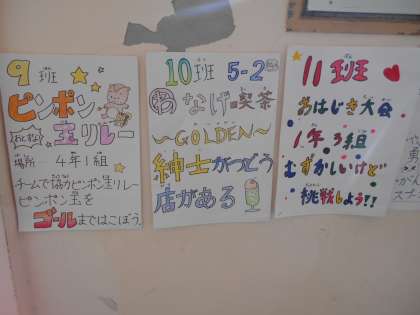 9班
ピンポン
玉リレー
場所… 4年1組
チームで協力ピンポン玉リレー
ピンポン玉を
ゴールまではこぼう。
10班 5-2
わなげ喫茶
～GOLDEN～
紳士がつどう
店がある
11班
おはじき大会
1年3組
むずかしいけど
挑戦しよう!!